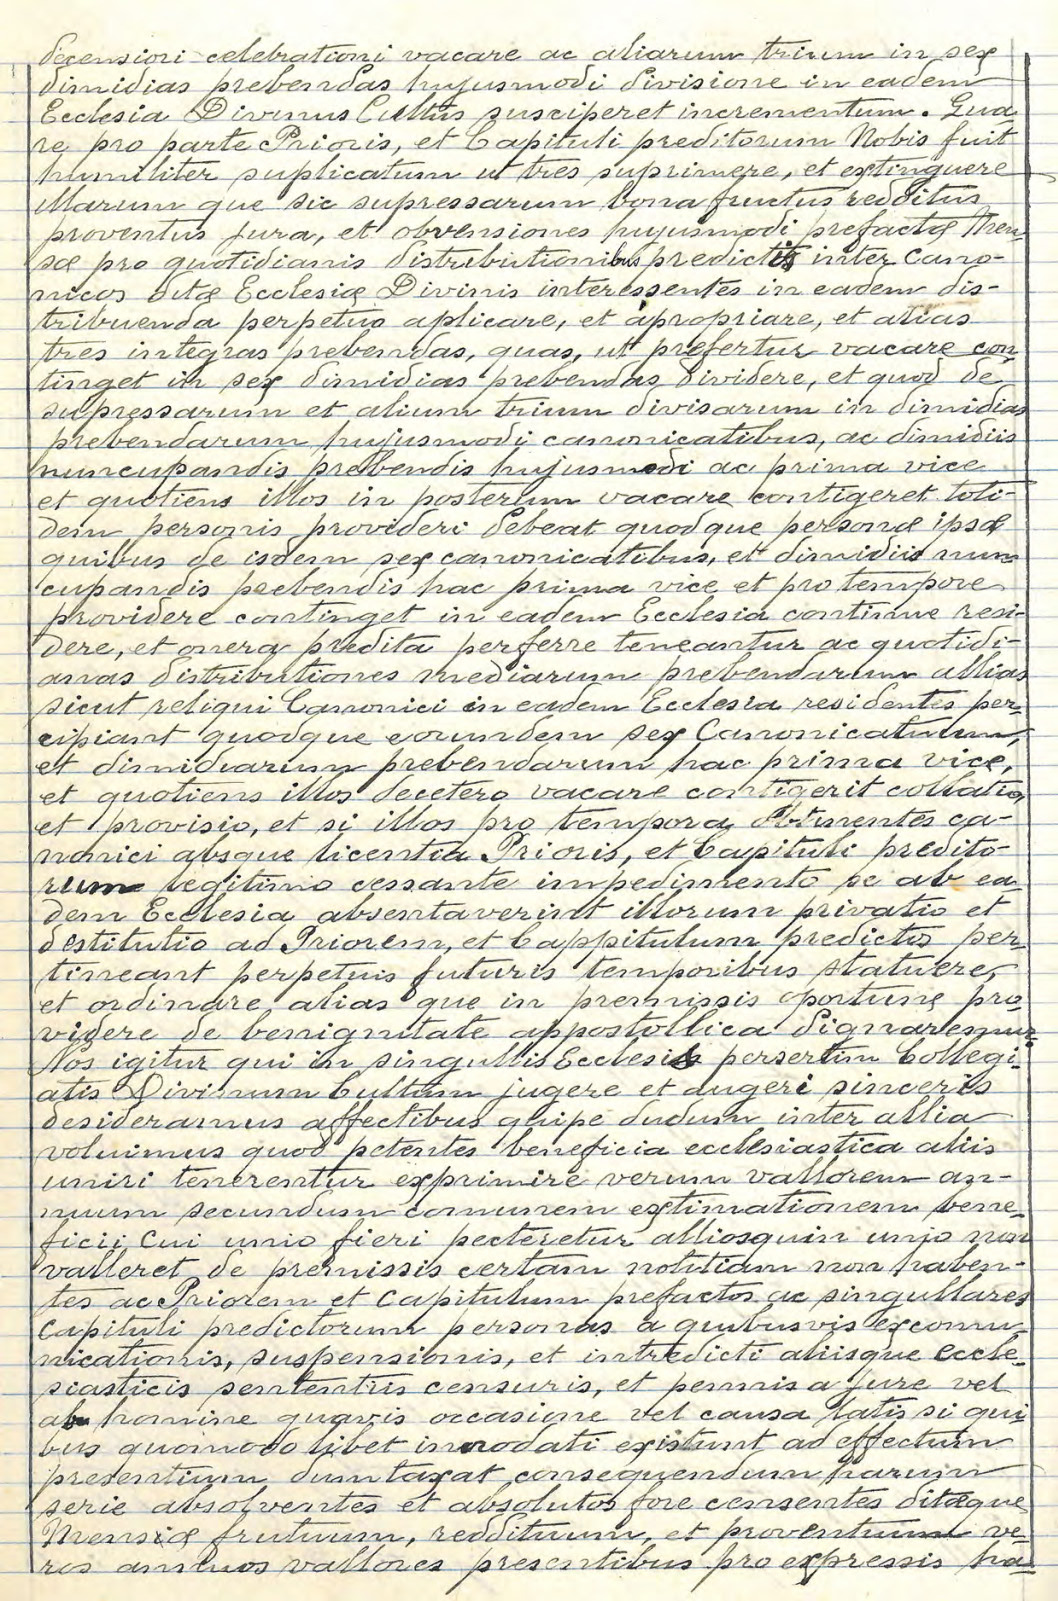 decensiori celebrationi vacare ac aliarum trium in sex
dimidias prebendas hujusmodi divisione in eadem
Ecclesia Divinus Cultus susciperet incrementum. Qua
re pro parte Prioris, et Capituli preditorum Nobis fuit
humiliter suplicatum ut tres suprimere, et extinguere
illarum que sic supressarum bona fructus redditus
proventus jura, et obvensiones hujusmodi prefactæ Men
sæ pro quotidianis distributionibus predictis inter Cano-
nicos ditæ Ecclesiæ Divinis interessentes in eadem dis-
tribuenda perpetuo aplicare, et apropriare, et alias
tres integras prebendas, quas, ut prefertur vacare con
tinget in sex dimidias prebendas dividere, et quod de
supressarum et alium trium divisarum in dimidias
prebendarum hujusmodi canonicatibus, ac dimidiis
nuncupandis prebendis hujusmodi ac prima vice
et quotiens illos in posterum vacare contigeret toti-
dem personis provideri debeat quodque personæ ipsæ
quibus de isdem sex canonicatibus, et dimidiis nun
cupandis prebendis hac prima vice et pro tempore
providere continget in eadem Ecclesia continue resi-
dere, et onera predita perferre teneantur ac quotidi-
anas distributiones mediarum prebendarum allias
sicut reliqui Canonici in eadem Ecclesia residentes per-
cipiant quodque eorumdem sex Canonicatuum,
et dimidiarum prebendarum hac prima vice,
et quotiens illos decetero vacare contigerit collatio,
et provisio, et si illos pro tempora obtinentes ca-
nonici absque licentia Prioris, et Capituli predito-
rum legitimo cessante impedimento se ab ea
dem Ecclesia absentaverint illorum privatio et
destitutio ad Priorem, et Cappitulum predictos per-
tineant perpetuis futuris temporibus statuere,
et ordinare alias que in premissis oportune pro
videre de benignitate appostollica dignaremur
Nos igitur qui in singullis Ecclesiis persertim Collegi-
atis Divinum Cultum jugere et augeri sinceris
desideramus affectibus quipe dudum inter allia
voluimus quod petentes beneficia ecclesiastica aliis
uniri tenerentur exprimire verum vallorem an-
nuum secundum comunem extimationem bene-
ficii cui unio fieri pecteretur alliosquin unjo non
valleret de premissis certam notitiam non haben-
tes ac Priorem et Capitulum prefactos ac singullares
Capituli predictorum personas a quibusvis excomu-
nicationis, suspensionis, et intredicti aliisque eccle-
siasticis sententris censuris, et pennis a jure vel
ab homine quavis occasione vel causa latis si qui
bus quomodo libet innodati existunt ad effectum
presentium dumtaxat consequendum harum
serie absolventes et absolutos fore censentes ditæque
Mensiæ frutuum, reddituum, et proventuum ve-
ros annuos vallores presentibus pro expressis ha-